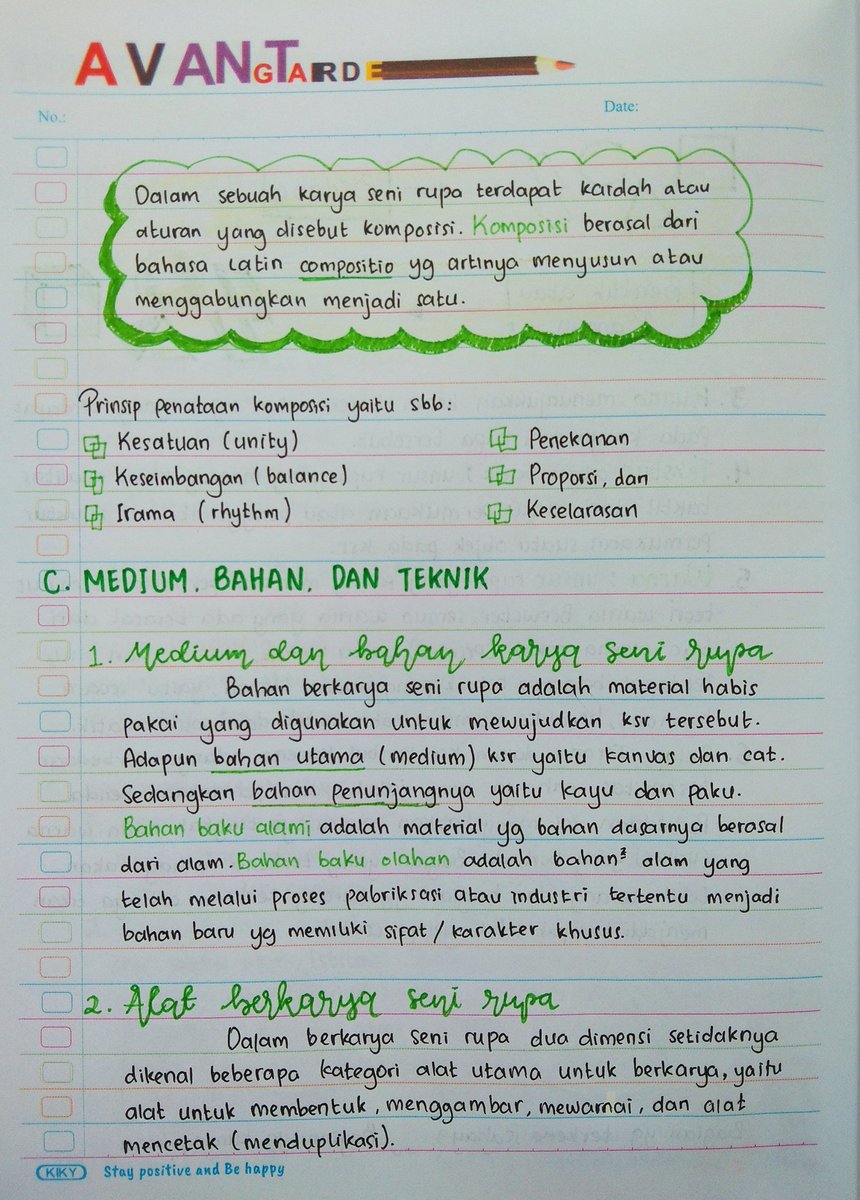 AVANTGARDE
No.:
Date:
Dalam sebuah karya seni rupa terdapat kaidah atau
aturan yang disebut komposisi. Komposisi berasal dari
bahasa Latin compositio yg artinya menyusun atau
menggabungkan menjadi satu.
Prinsip penataan komposisi yaitu sbb:
Kesatuan (unity)
Keseimbangan (balance)
Irama (rhythm)
Penekanan
Proporsi, dan
Keselarasan
C. MEDIUM, BAHAN, DAN TEKNIK
1. Medium dan bahan karya seni rupa
Bahan berkarya seni rupa adalah material habis
pakai yang digunakan untuk mewujudkan ksr tersebut.
Adapun bahan utama (medium) ksr yaitu kanvas dan cat.
Sedangkan bahan penunjangnya yaitu kayu dan paku.
Bahan baku alami adalah material yg bahan dasarnya berasal
dari alam. Bahan baku olahan adalah bahan² alam yang
telah melalui proses pabriksasi atau industri tertentu menjadi
bahan baru yg memiliki sifat/karakter khusus.
2. Alat berkarya seni rupa
Dalam berkarya seni rupa dua dimensi setidaknya
dikenal beberapa kategori alat utama untuk berkarya, yaitu
alat untuk membentuk, menggambar, mewarnai, dan alat
mencetak (menduplikasi).
KIKY Stay positive and Be happy